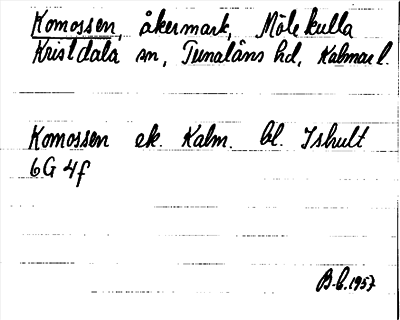 Komossen, åkermark, Mölekulla
Kristdala sn, Tunaläns hd, Kalmar l.
Komossen ek. Kalm. bl. Ishult
6G 4f
B-b. 1957